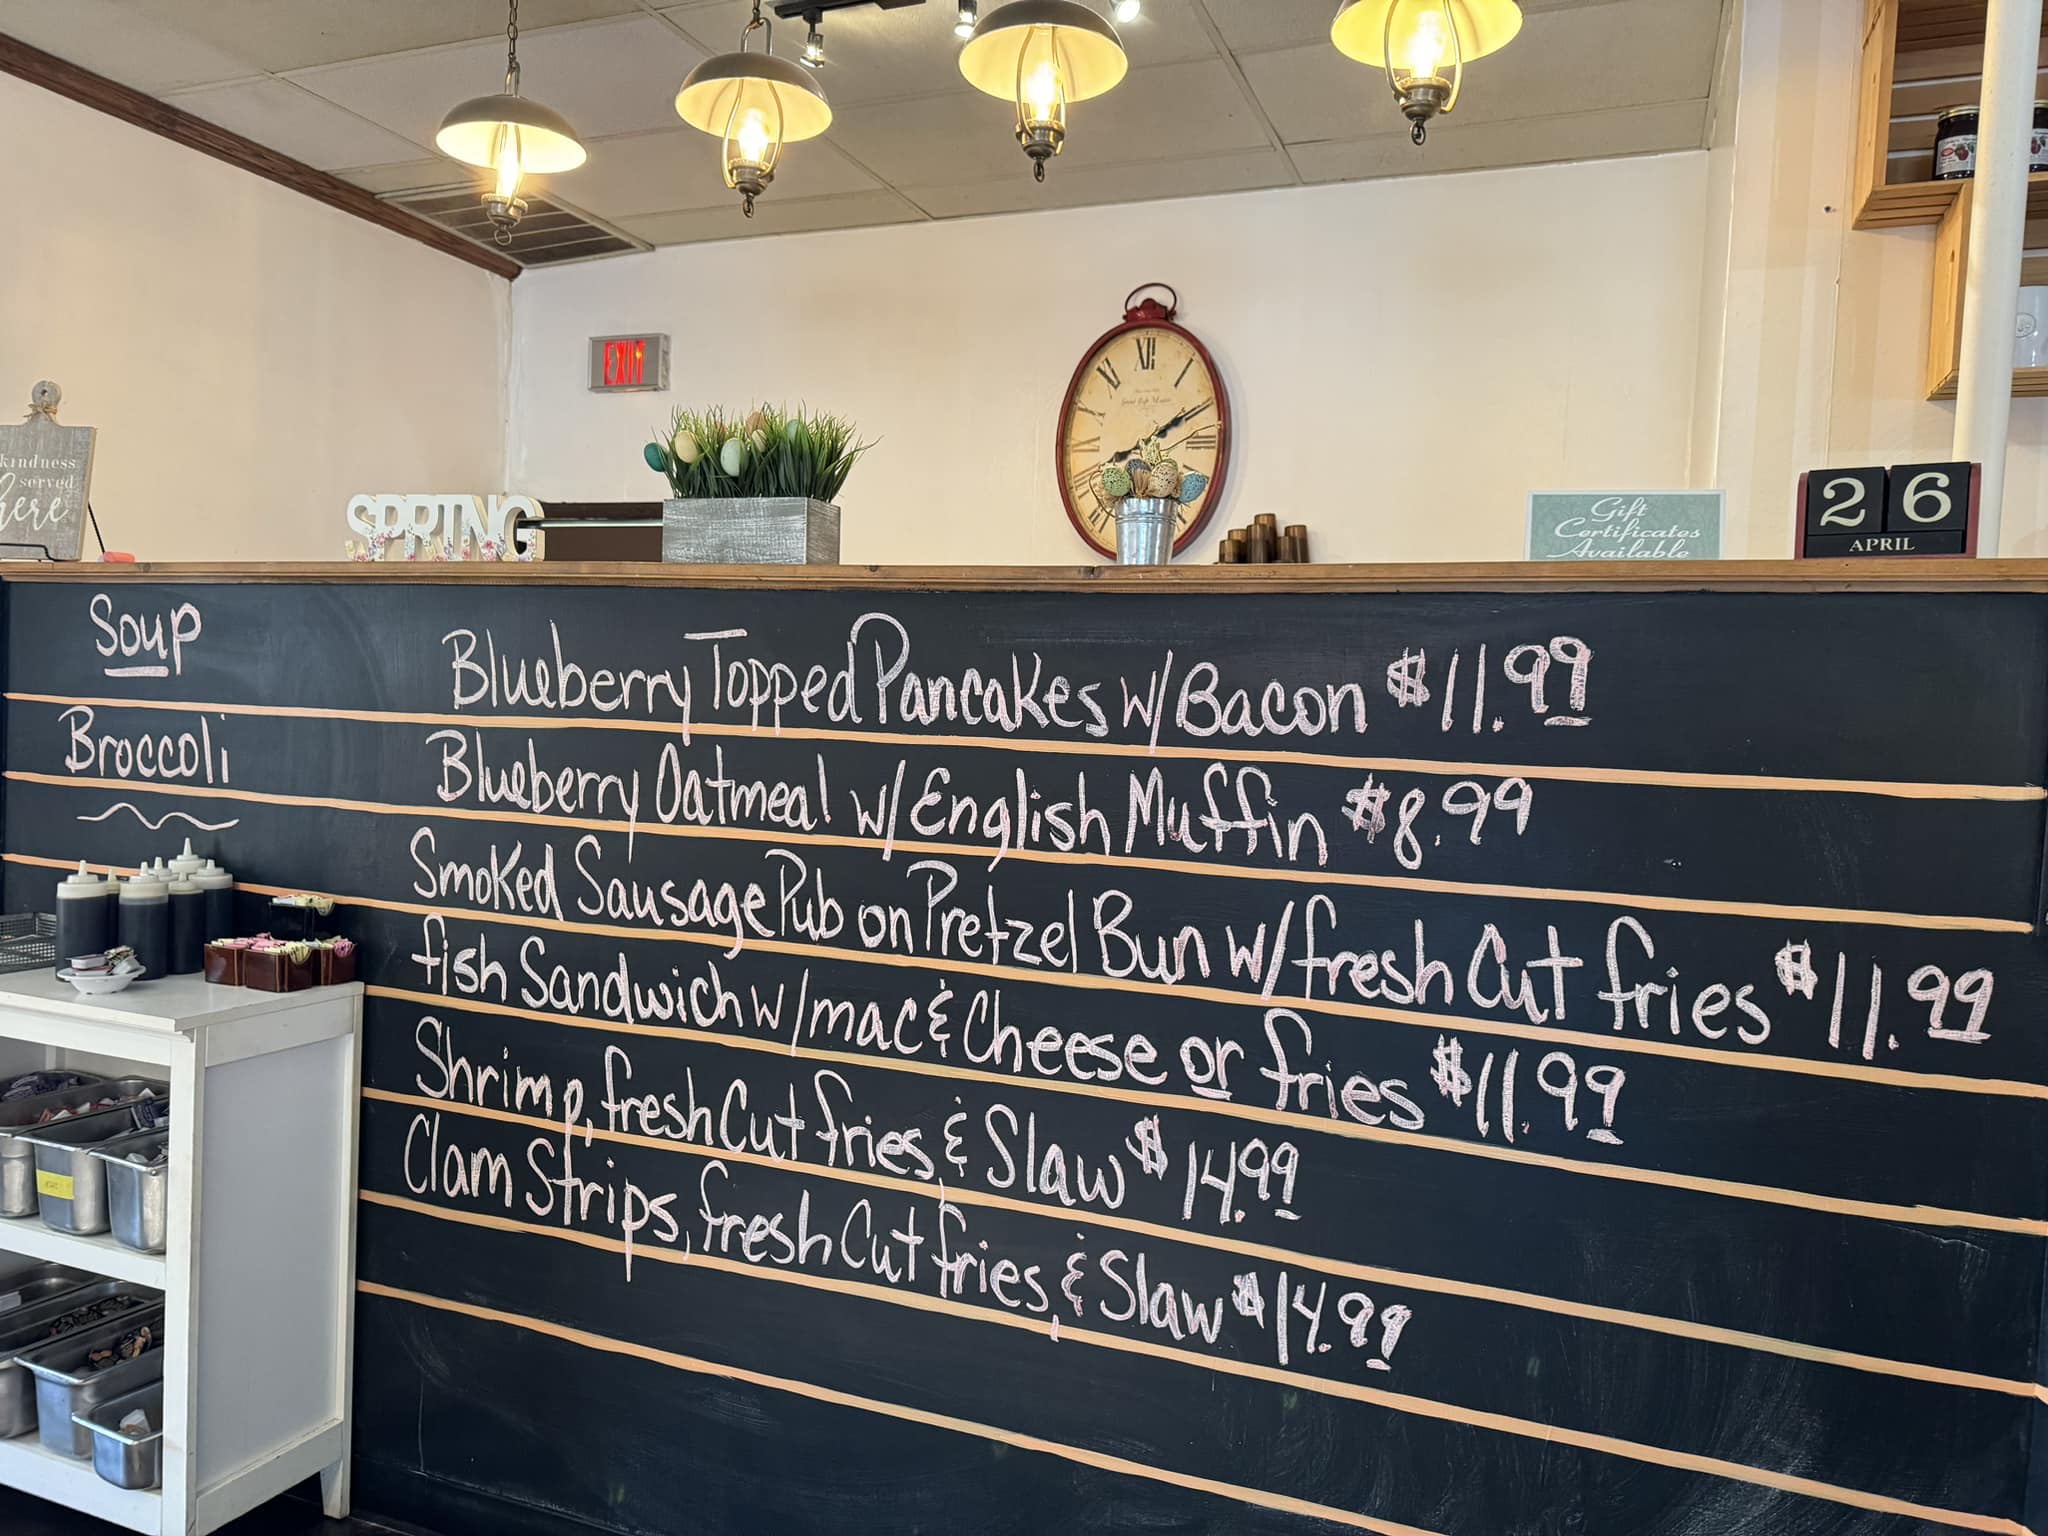 EXIT
kindness
served
here
SPRING
XII
XI
Gift
Certificates
Available
26
APRIL
Soup
Broccoli
Blueberry Topped Pancakes w/Bacon $11.99
Blueberry Oatmeal w/English Muffin $8.99
Smoked Sausage Pub on Pretzel Bun w/fresh Cut fries $11.99
fish Sandwich w/mac & Cheese or fries $11.99
Shrimp, fresh Cut fries, & Slaw $14.99
Clam Strips, fresh Cut fries, & Slaw $14.99